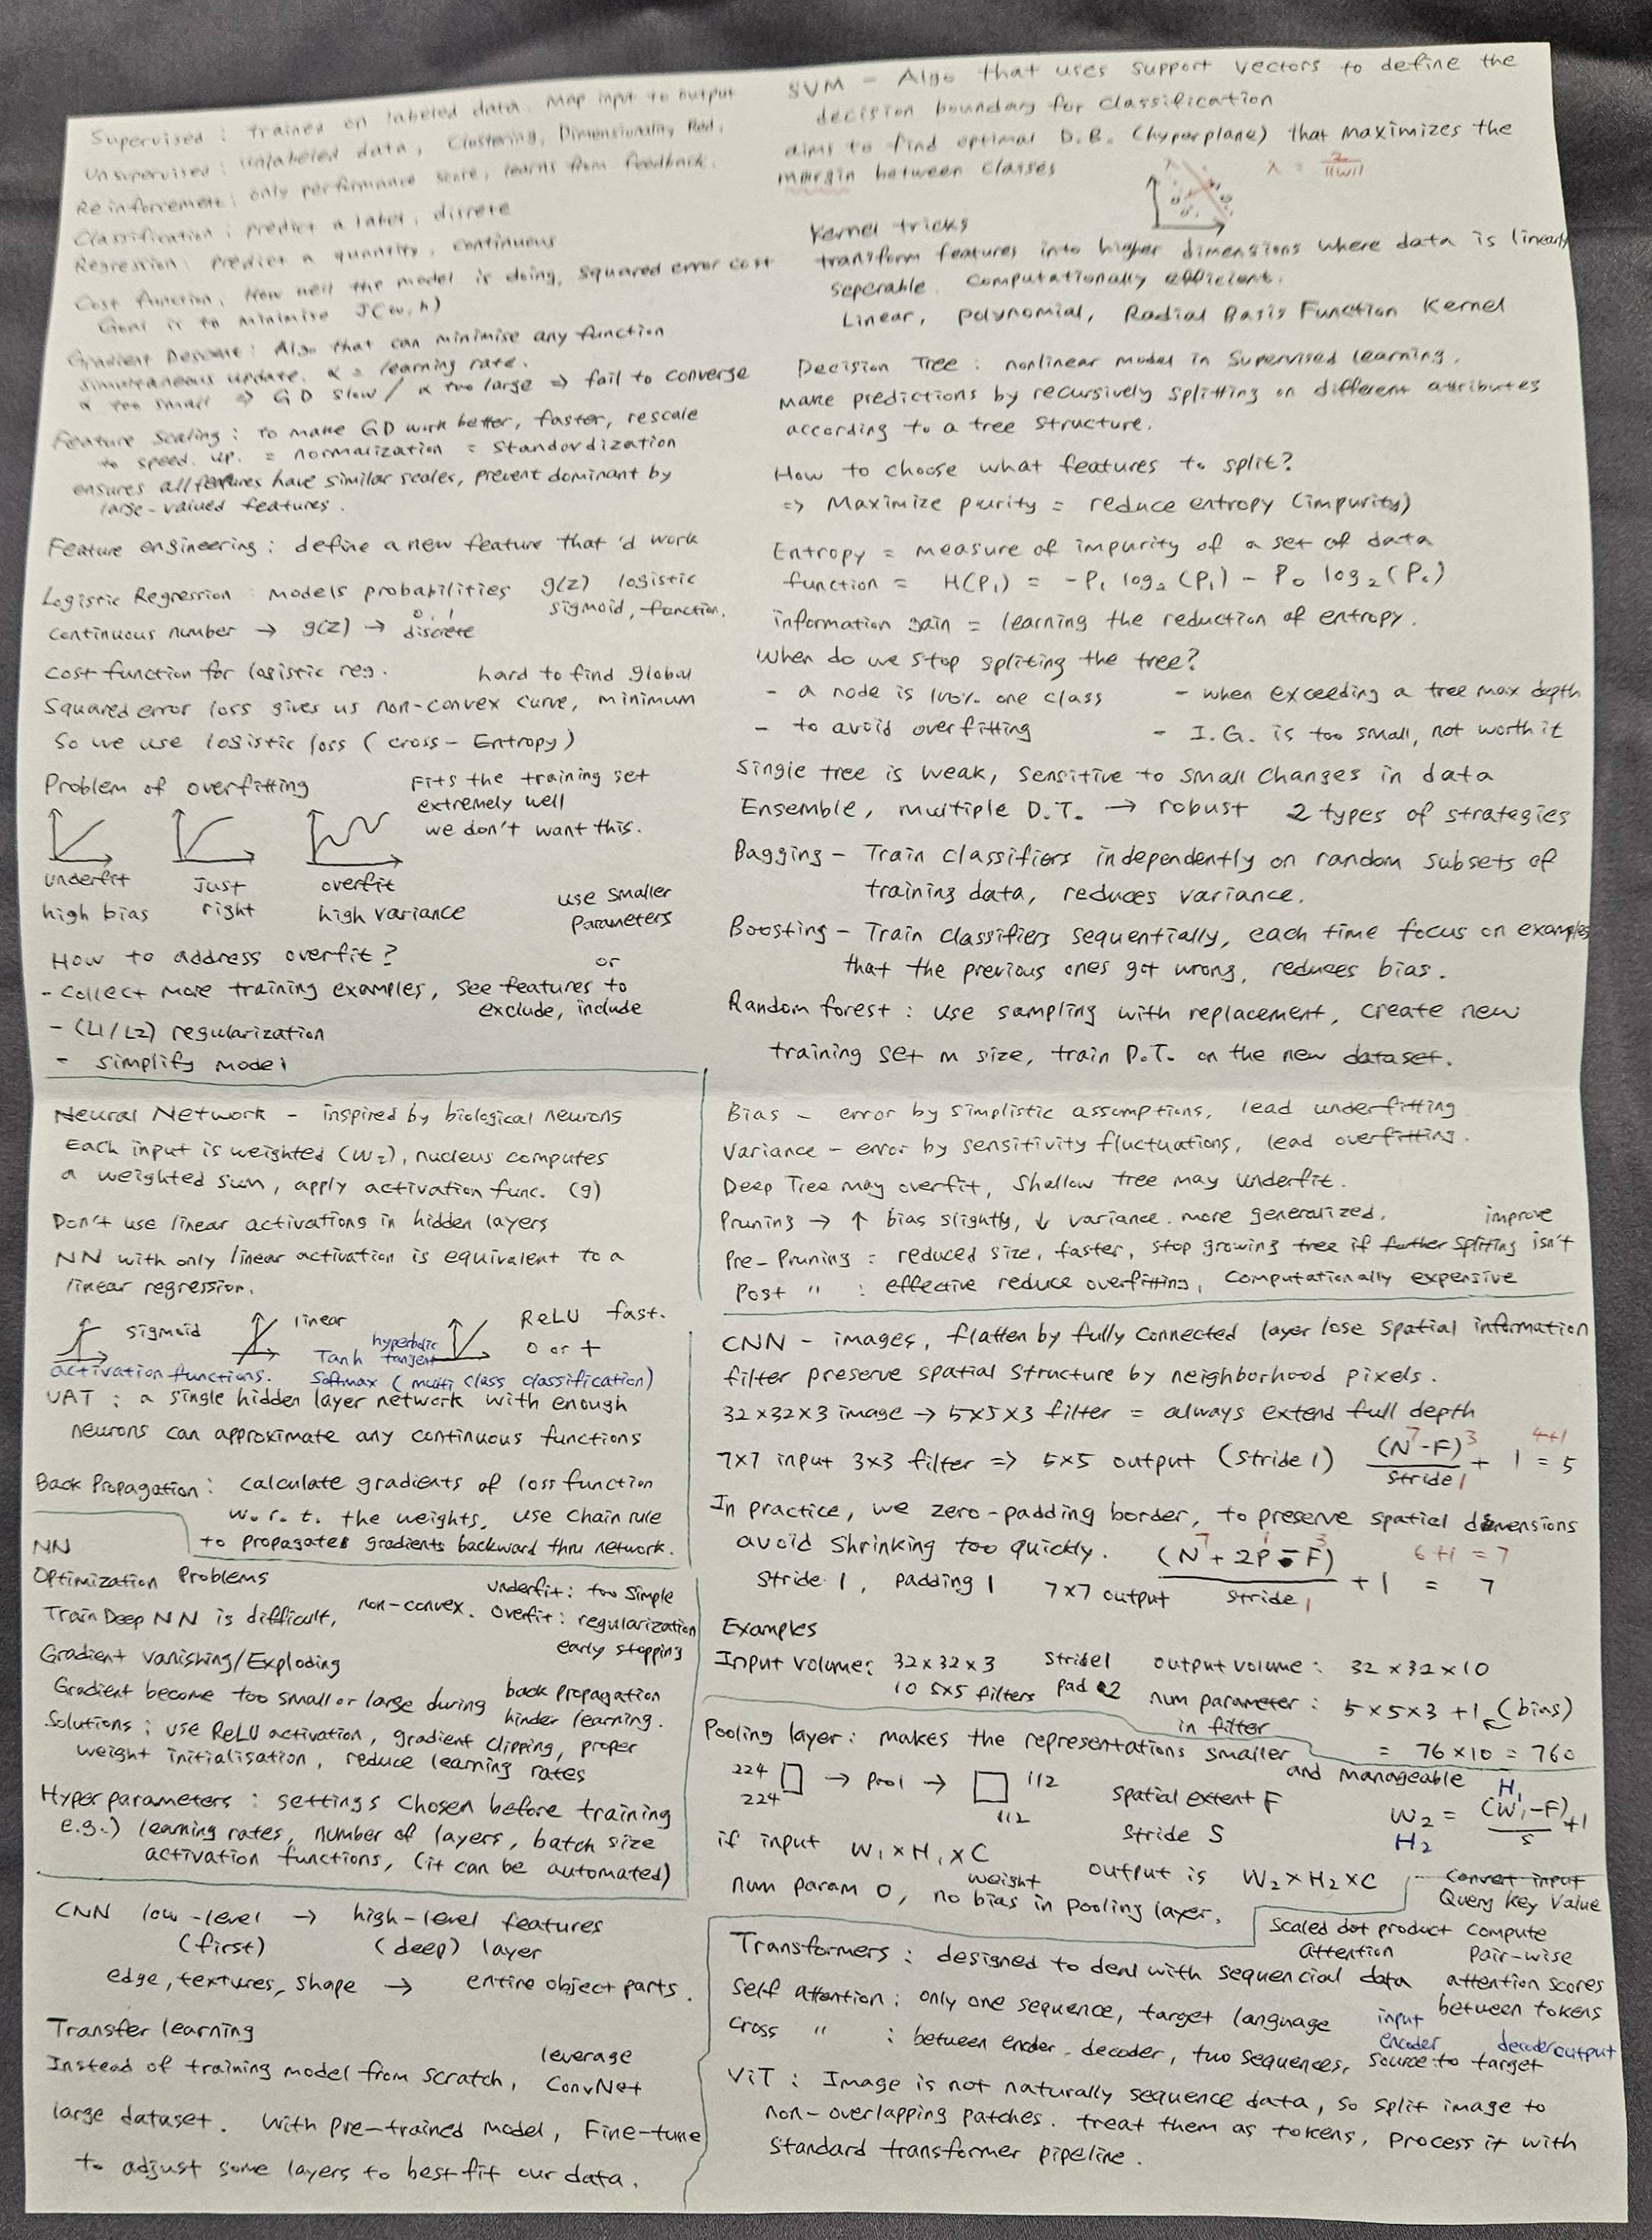 Supervised : trained on labeled data. Map input to output
Unsupervised : unlabeled data, Clustering, Dimensionality Red.
Reinforcement : only performance score, learns from feedback.
Classification : predict a label, discrete
Regression : predict a quantity, continuous
Cost function, How well the model is doing, squared error cost
Goal is to minimise J(w,b)
Gradient Descent : Algo that can minimise any function
simultaneous update. α = learning rate.
α too small => GD slow / α too large => fail to converge
Feature Scaling : to make GD work better, faster, rescale
to speed up. = normalization = standardization
ensures all features have similar scales, prevent dominant by
large-valued features.
Feature engineering : define a new feature that'd work
Logistic Regression : models probabilities g(z) logistic
sigmoid, function.
continuous number → g(z) → 0, 1 discrete
cost function for logistic reg. hard to find global
Squared error loss gives us non-convex curve, minimum
So we use logistic loss (cross-Entropy)
Problem of overfitting
Fits the training set
extremely well
we don't want this.
underfit just overfit
high bias right high variance
use smaller
parameters
How to address overfit? or
- Collect more training examples, see features to
exclude, include
- (L1/L2) regularization
- simplify model
Neural Network - inspired by biological neurons
Each input is weighted (W_i), nucleus computes
a weighted sum, apply activation func. (g)
Don't use linear activations in hidden layers
NN with only linear activation is equivalent to a
linear regression.
sigmoid linear ReLU fast.
Tanh hyperbolic tangent 0 or +
activation functions. Softmax (multi class classification)
UAT : a single hidden layer network with enough
neurons can approximate any continuous functions
Back Propagation : calculate gradients of loss function
w.r.t. the weights, use chain rule
to propagates gradients backward thru network.
NN
Optimization Problems
Train Deep NN is difficult, non-convex.
underfit : too simple
overfit : regularization
early stopping
Gradient vanishing/Exploding
Gradient become too small or large during back propagation
hinder learning.
Solutions : use ReLU activation, gradient clipping, proper
weight initialisation, reduce learning rates
Hyper parameters : settings chosen before training
e.g.) learning rates, number of layers, batch size
activation functions, (it can be automated)
CNN low-level → high-level features
(first) (deep) layer
edge, textures, shape → entire object parts.
Transfer learning
Instead of training model from scratch, leverage
ConvNet
large dataset. With pre-trained model, Fine-tune
to adjust some layers to best fit our data.
SVM - Algo that uses support vectors to define the
decision boundary for classification
aims to find optimal D.B. (hyperplane) that maximizes the
margin between classes
λ = 2/||w||
Kernel tricks
transform features into higher dimensions where data is linearly
seperable. Computationally efficient.
Linear, polynomial, Radial Basis Function Kernel
Decision Tree : nonlinear model in Supervised learning.
Make predictions by recursively splitting on different attributes
according to a tree structure.
How to choose what features to split?
=> Maximize purity = reduce entropy (impurity)
Entropy = measure of impurity of a set of data
function = H(P₁) = -P₁ log₂(P₁) - P₀ log₂(P₀)
information gain = learning the reduction of entropy.
When do we stop spliting the tree?
- a node is 100% one class - when exceeding a tree max depth
- to avoid overfitting - I.G. is too small, not worth it
Single tree is weak, sensitive to small changes in data
Ensemble, multiple D.T. → robust 2 types of strategies
Bagging - Train classifiers independently on random subsets of
training data, reduces variance.
Boosting - Train classifiers sequentially, each time focus on examples
that the previous ones got wrong, reduces bias.
Random forest : use sampling with replacement, create new
training set m size, train D.T. on the new dataset.
Bias - error by simplistic assumptions, lead underfitting
Variance - error by sensitivity fluctuations, lead overfitting.
Deep Tree may overfit, Shallow tree may underfit.
Pruning → ↑ bias slightly, ↓ variance. more generalized.
improve
Pre-Pruning : reduced size, faster, stop growing tree if further spliting isn't
Post " : effective reduce overfitting, computationally expensive
CNN - images, flatten by fully connected layer lose spatial information
filter preserve spatial structure by neighborhood pixels.
32×32×3 image → 5×5×3 filter = always extend full depth
7×7 input 3×3 filter => 5×5 output (stride 1) (N⁷-F)³/stride 1 + 1 = 5
4+1
In practice, we zero-padding border, to preserve spatial dimensions
avoid shrinking too quickly. (N⁷ + 2P¹ - F³)/stride 1 + 1 = 7
6+1 = 7
stride 1, padding 1 7×7 output
Examples
Input volume: 32×32×3 stride1 output volume : 32×32×10
10 5×5 filters pad 2 num parameter : 5×5×3 +1 (bias)
in filter
= 76×10 = 760
Pooling layer : makes the representations smaller
and manageable
224 224 → pool → 112 112
spatial extent F
stride S
W₂ = (W₁-F)/S +1
H₂ H₁
if input W₁×H₁×C output is W₂×H₂×C
num param 0, no weight bias in pooling layer.
Convert input
Query Key Value
Scaled dot product attention
compute
pair-wise
attention scores
between tokens
Transformers : designed to deal with sequencial data
Self attention : only one sequence, target language
cross " : between encder, decoder, two sequences, source to target
input
encoder decoder output
ViT : Image is not naturally sequence data, so split image to
non-overlapping patches. treat them as tokens, process it with
standard transformer pipeline.